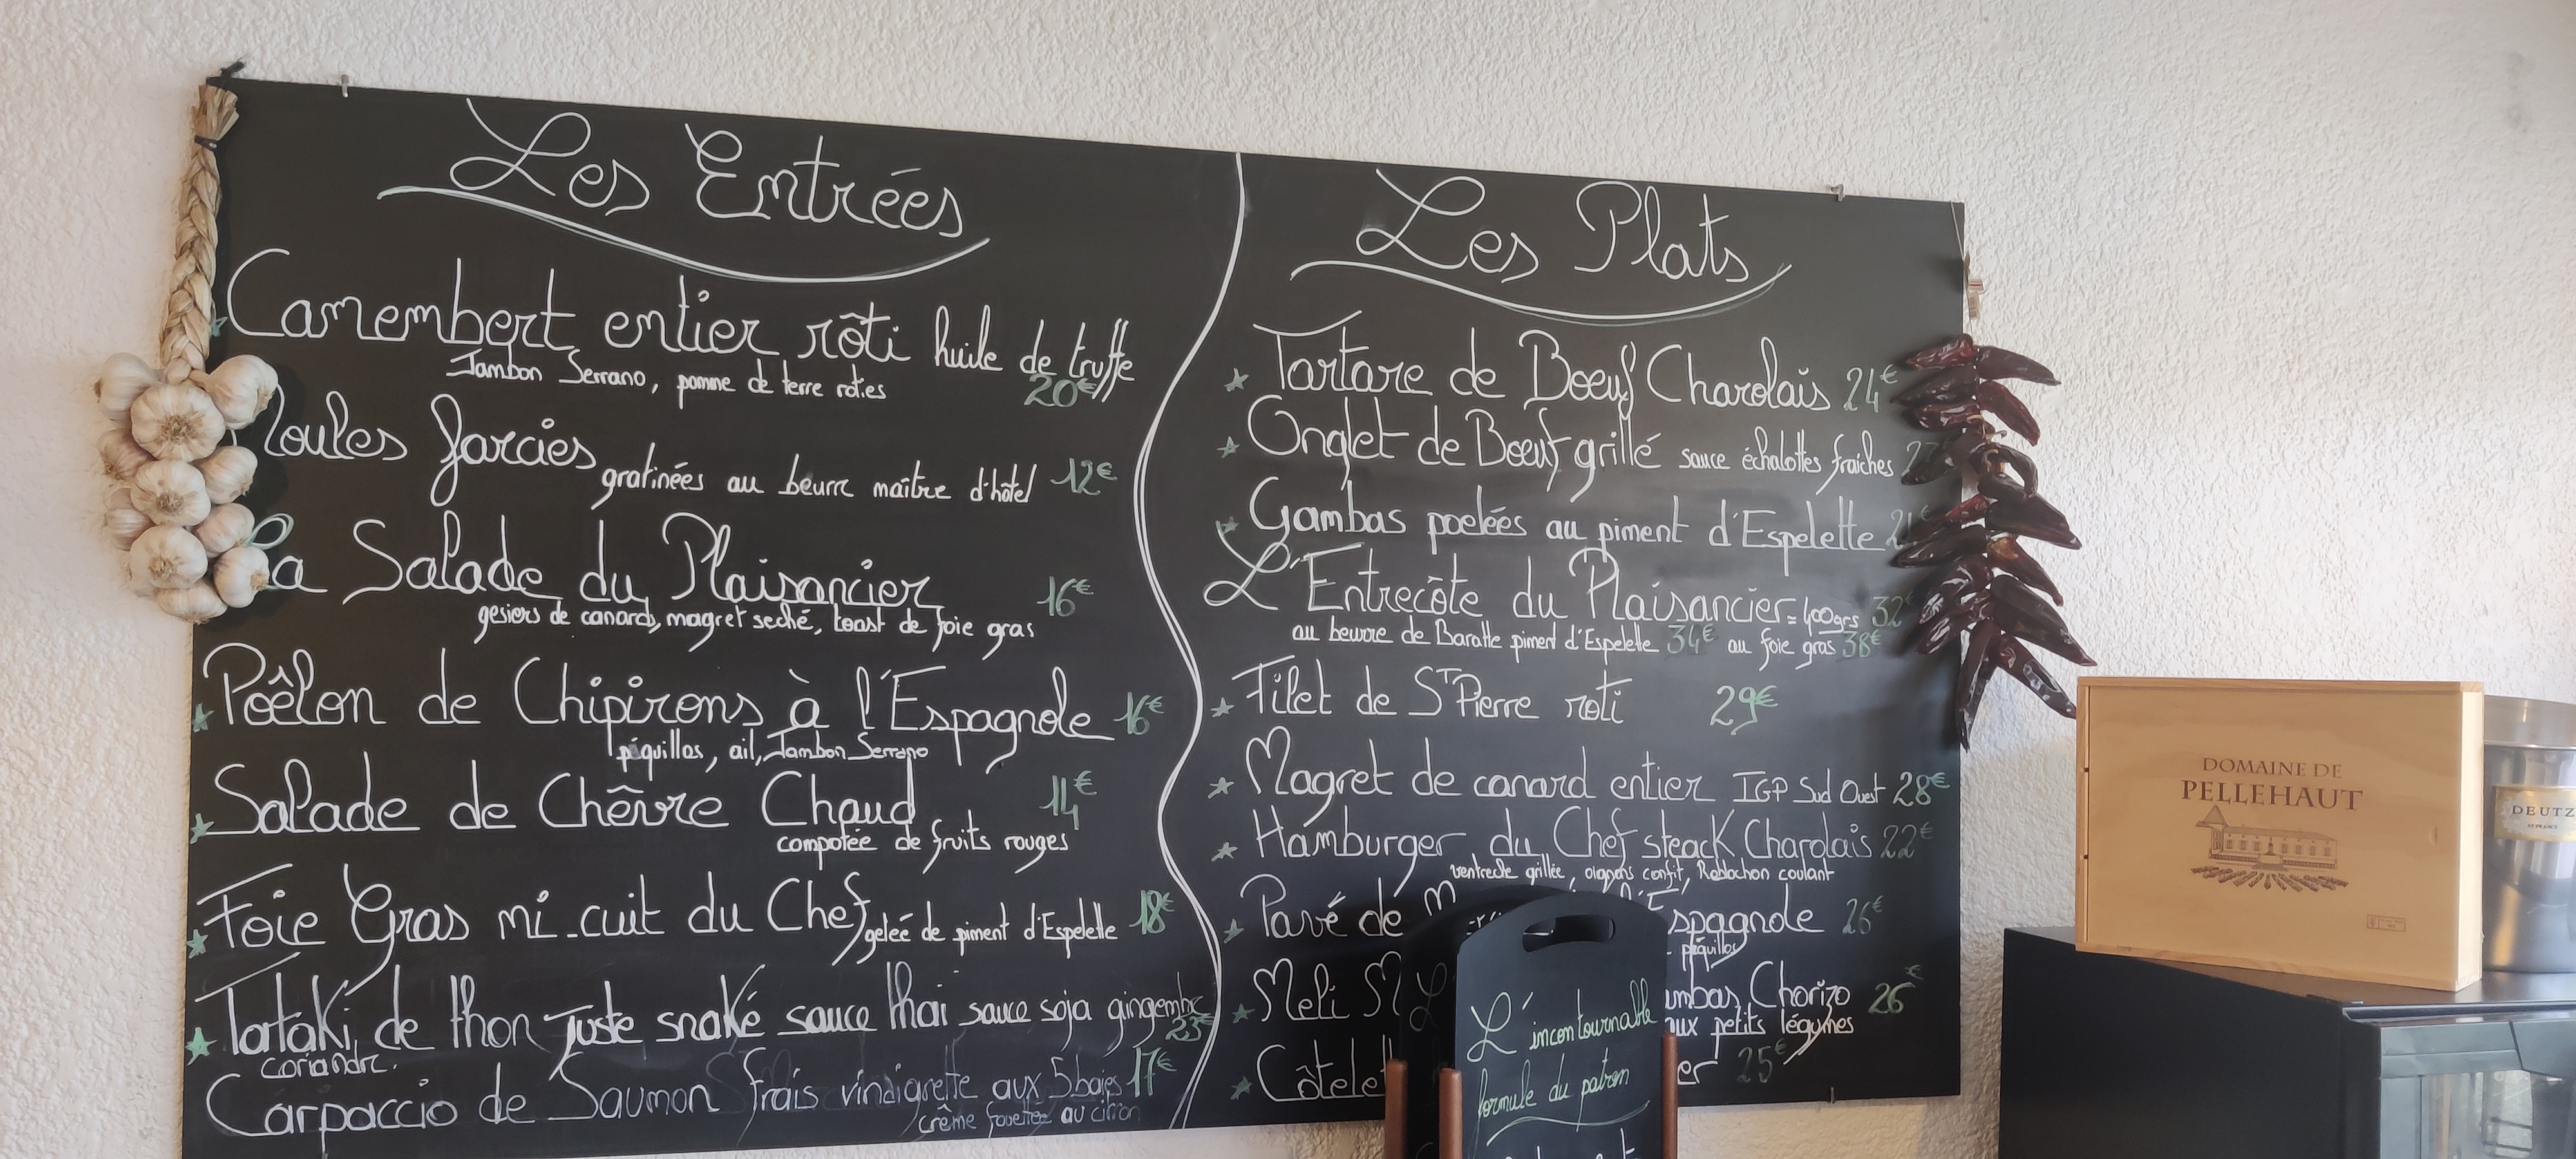 Les Entrées
Camembert entier rôti huile de truffe
Jambon Serrano, pomme de terre roties
20€
oules farcies gratinées au beurre maître d'hôtel 12€
La Salade du Plaisancier 16€
gesiers de canards, magret seché, toast de foie gras
Poêlon de Chipirons à l'Espagnole 16€
piquillos, ail, Jambon Serrano
Salade de Chêvre Chaud 14€
compotée de fruits rouges
Foie Gras mi-cuit du Chef gelée de piment d'Espelette 18€
Tataki de thon juste snaké sauce thai sauce soja gingembre
coriandre.
Carpaccio de Saumon frais vindigrette aux 5 baies 17€
crême fouettée au citron
Les Plats
Tartare de Boeuf Charolais 24€
Onglet de Boeuf grillé sauce échalottes fraiches
Gambas poelées au piment d'Espelette
L'Entrecôte du Plaisancier = 400grs 32€
au beurre de Baratte piment d'Espelette 34€ au foie gras 38€
Filet de St Pierre roti 29€
Magret de canard entier IGP Sud Ouest 28€
Hamburger du Chef steack Charolais 22€
ventreche grillée, oignons confit, Reblochon coulant
Pavé de M spagnole 26€
piquillos
Meli M ambas, Chorizo 26€
aux petits légumes
Côtelet er 25€
L'incontournable
formule du patron
DOMAINE DE
PELLEHAUT
DEUTZ